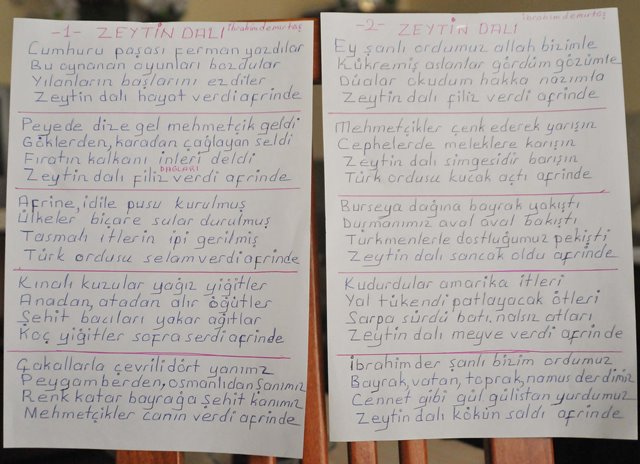 -1- ZEYTİN DALI İbrahimdemirtaş
Cumhuru paşası ferman yazdılar
Bu oynanan oyunları bozdular
Yılanların başlarını ezdiler
Zeytin dalı hayat verdi afrinde
Peyede dize gel mehmetçik geldi
Göklerden, karadan çağlayan seldi
Fıratın kalkanı inleri deldi
DAĞLARI
Zeytin dalı filiz verdi afrinde
Afrine, idile pusu kurulmuş
Ülkeler biçare sular durulmuş
Tasmalı itlerin ipi gerilmiş
Türk ordusu selam verdi afrinde
Kınalı kuzular yağız yiğitler
Anadan, atadan alır öğütler
Şehit bacıları yakar ağıtlar
Koç yiğitler sofra serdi afrinde
Çakallarla çevrili dört yanımız
Peygamberden, osmanlıdan şanımız
Renk katar bayrağa şehit kanımız
Mehmetçikler canın verdi afrinde
-2- ZEYTİN DALI ibrahimdemirtaş
Ey şanlı ordumuz allah bizimle
Kükremiş aslanlar gördüm gözümle
Dualar okudum hakka nazımla
Zeytin dalı filiz verdi afrinde
Mehmetçikler çenk ederek yarışın
Cephelerde meleklere karışın
Zeytin dalı simgesidir barışın
Türk ordusu kucak açtı afrinde
Burseya dağına bayrak yakıştı
Duşmanımız aval aval bakıştı
Türkmenlerle dostluğumuz pekişti
Zeytin dalı sancak oldu afrinde
Kudurdular amarika itleri
Yal tükendi patlayacak ötleri
Sarpa sürdü batı, nalsız atları
Zeytin dalı meyve verdi afrinde
İbrahim der şanlı bizim ordumuz
Bayrak, vatan, toprak, namus derdimiz
Cennet gibi gül gülistan yurdumuz
Zeytin dalı kökün saldı afrinde